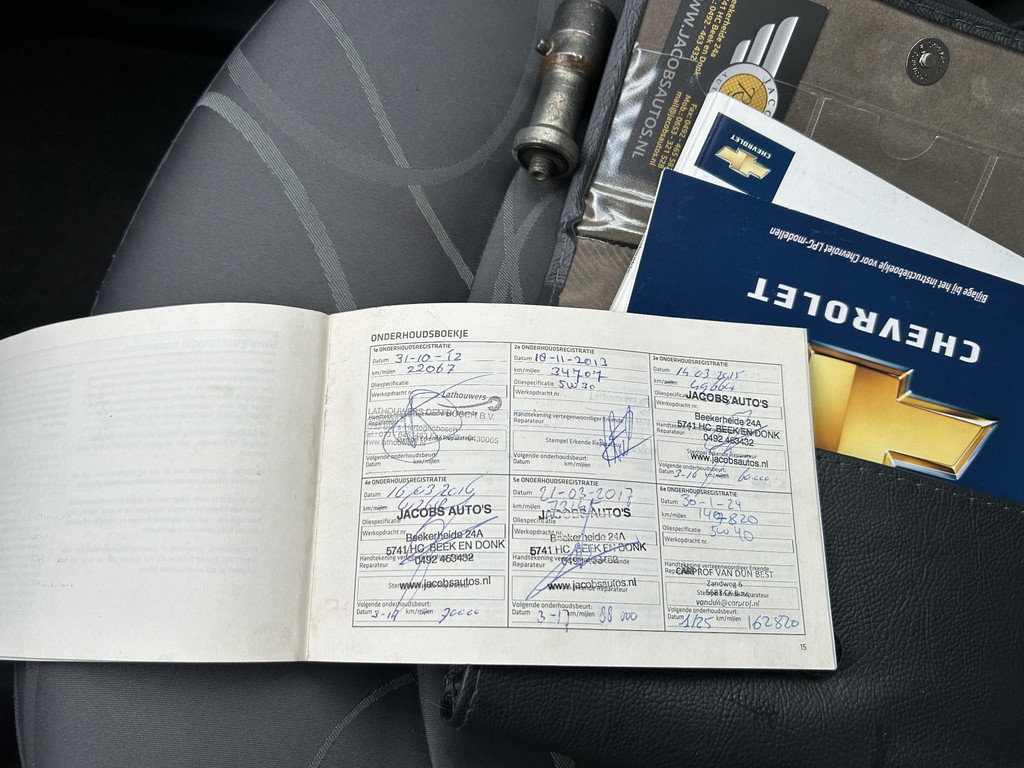 Beekerheide 24a
5741 HC Beek en Donk
0492-463 432
WWW.JACOBSAUTOS.NL
mail@jacobsautos.nl
CHEVROLET
Bijlage bij het instructieboekje voor Chevrolet LPG-modellen
CHEVROLET
ONDERHOUDSBOEKJE
1e ONDERHOUDSREGISTRATIE
Datum 31-10-12
km/mijlen 22067
Oliespecificatie
Werkopdracht nr.
Lathouwers
LATHOUWERS DEN BOSCH B.V.
Volgende onderhoudsbeurt:
Datum km/mijlen
2e ONDERHOUDSREGISTRATIE
Datum 18-11-2013
km/mijlen 34707
Oliespecificatie 5W30
Werkopdracht nr.
Handtekening vertegenwoordiger Erkende
Reparateur
Stempel Erkende Reparateur
Volgende onderhoudsbeurt:
Datum km/mijlen
3e ONDERHOUDSREGISTRATIE
Datum
km/mijlen
JACOBS AUTO'S
Werkopdracht nr.
Beekerheide 24A
5741 HC BEEK EN DONK
0492 463432
www.jacobsautos.nl
Volgende onderhoudsbeurt:
Datum 3-16 km/mijlen 60000
4e ONDERHOUDSREGISTRATIE
Datum 16/03/2016
km/mijlen
JACOBS AUTO'S
Oliespecificatie
Werkopdracht nr.
Beekerheide 24A
5741 HC BEEK EN DONK
0492 463432
Reparateur
www.jacobsautos.nl
Volgende onderhoudsbeurt:
Datum 3-17 km/mijlen 70000
5e ONDERHOUDSREGISTRATIE
Datum 21-03-2017
km/mijlen
JACOBS AUTO'S
Oliespecificatie
Werkopdracht nr.
Beekerheide 24A
5741 HC BEEK EN DONK
Reparateur
www.jacobsautos.nl
Volgende onderhoudsbeurt:
Datum 3-17 km/mijlen 88 000
6e ONDERHOUDSREGISTRATIE
Datum 30-1-24
km/mijlen 147820
Oliespecificatie 5W40
Werkopdracht nr.
Handtekening vertegenwoordiger Erkende
CARPROF VAN DUN BEST
Zandweg 6
vanduin@carprof.nl
Volgende onderhoudsbeurt:
Datum 1/25 km/mijlen 162820
15